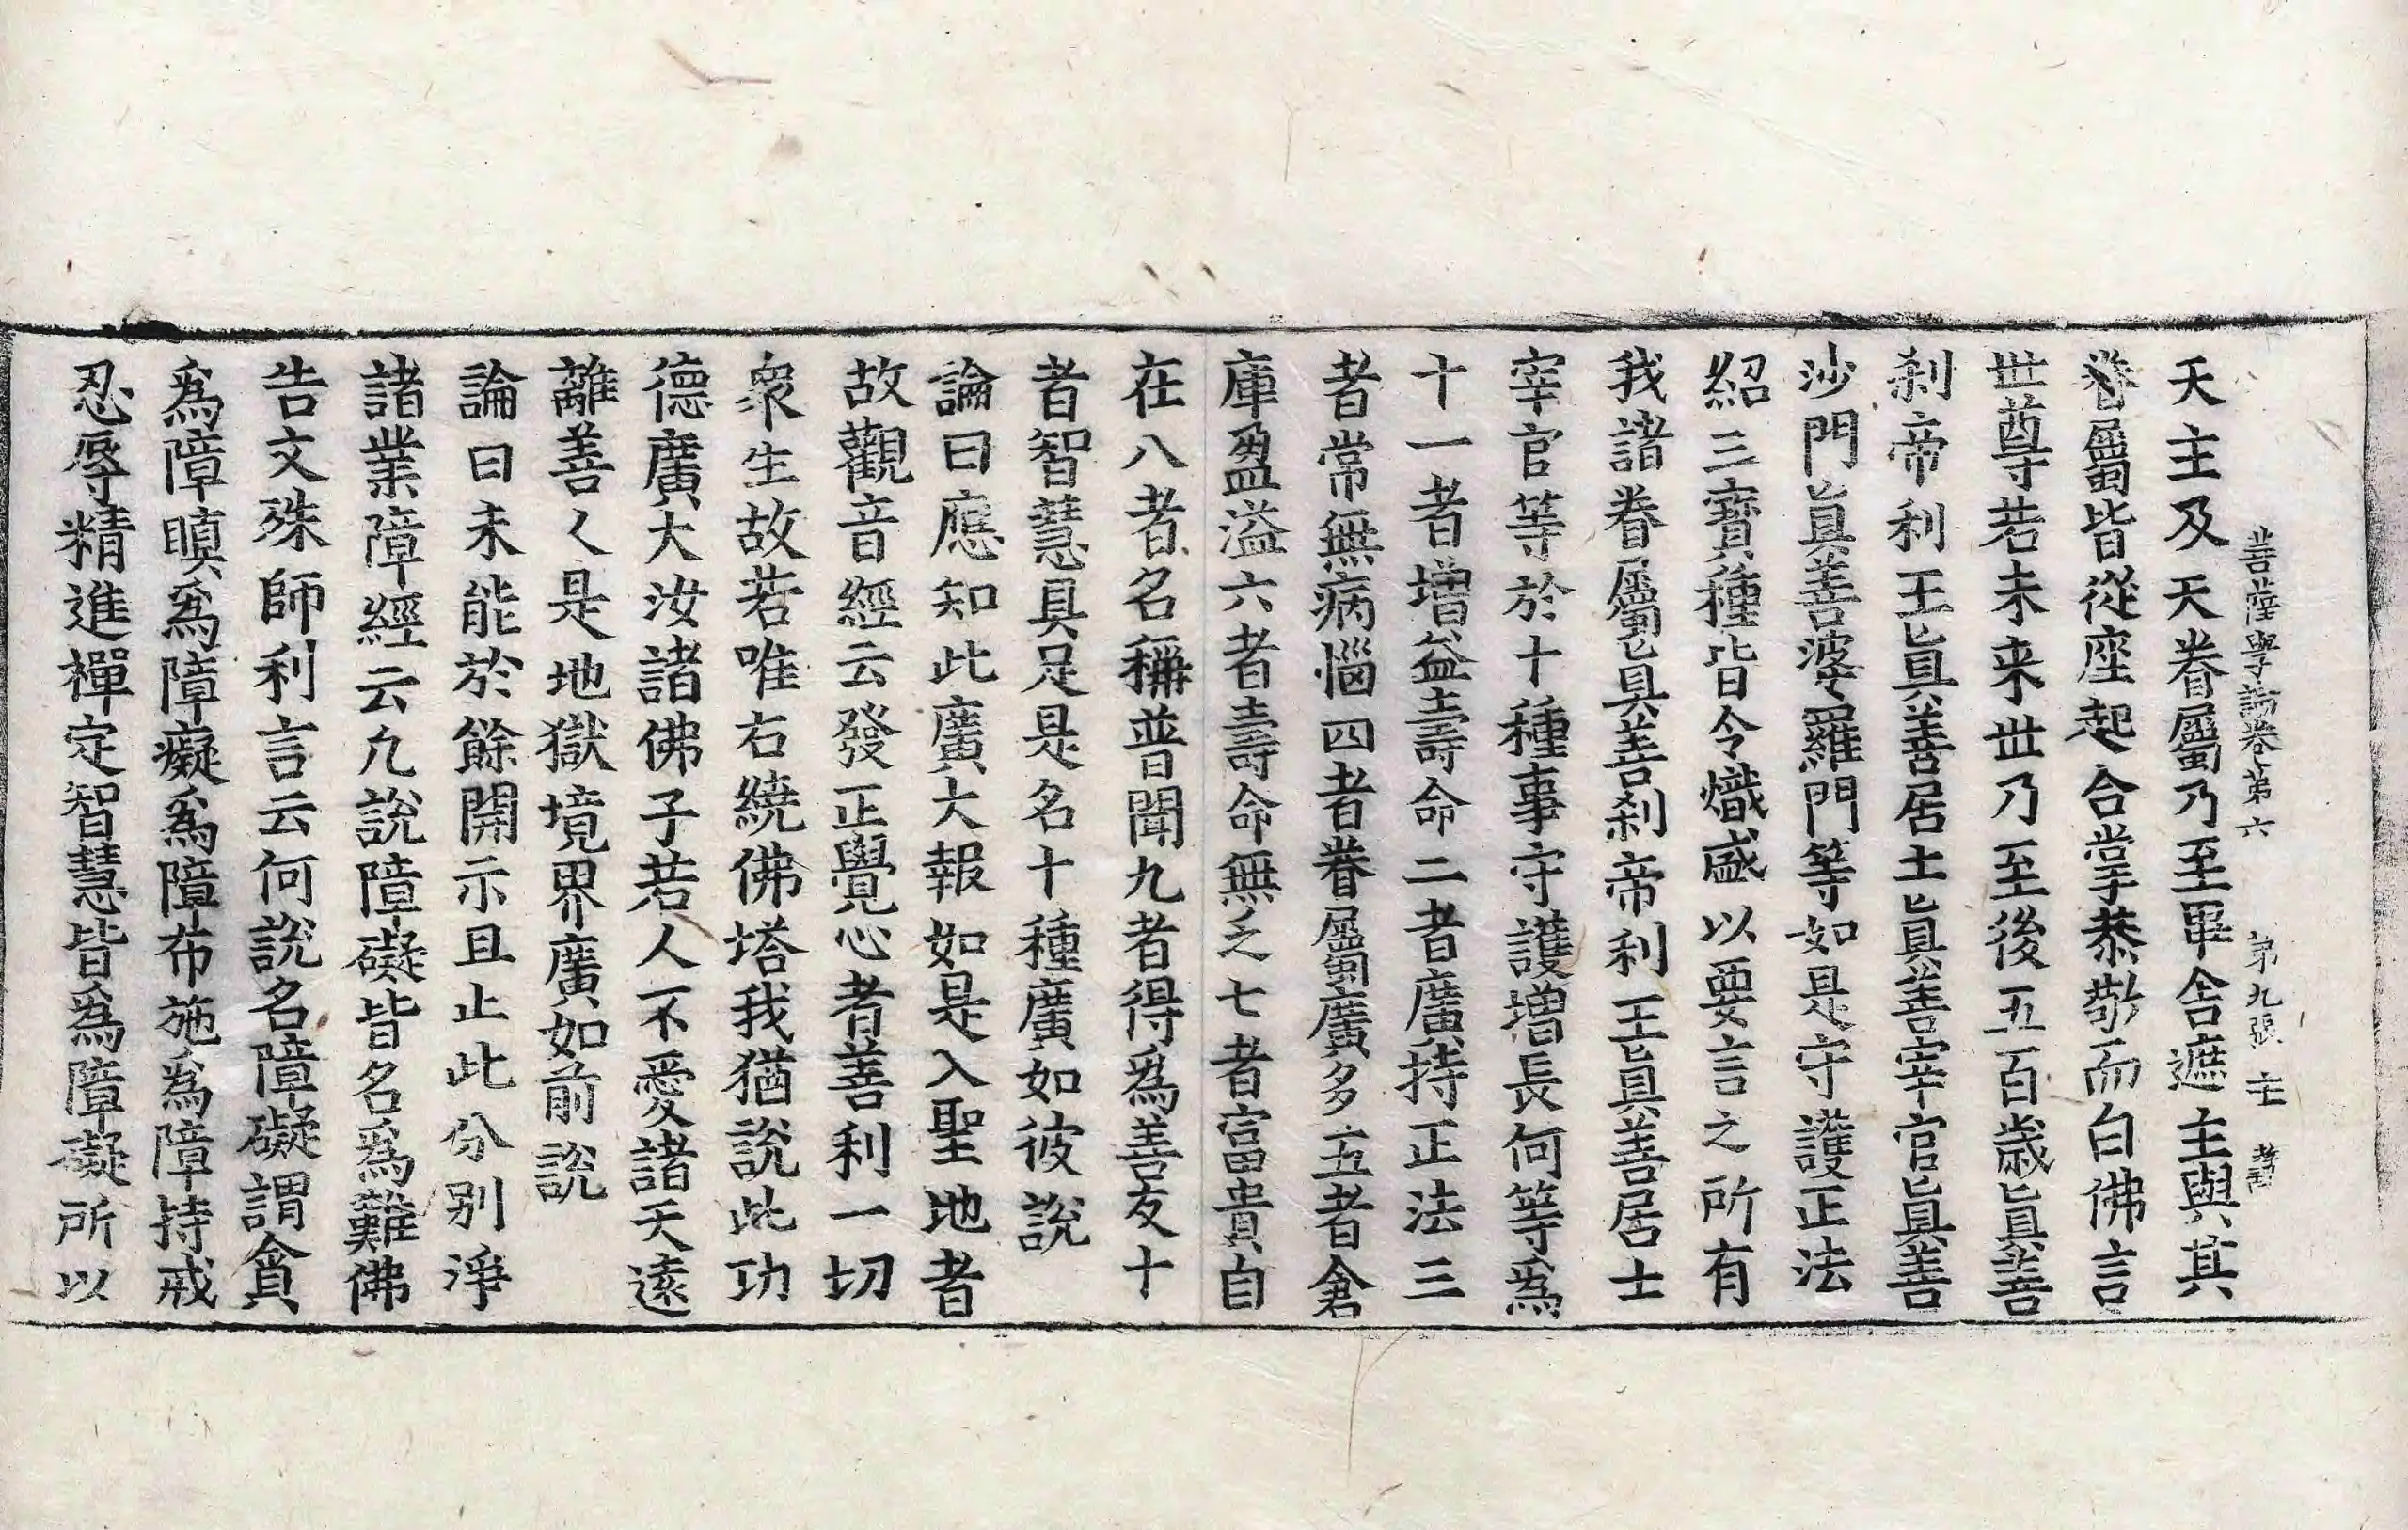 菩薩學論卷第六 第九張 主
天主及天眷屬乃至畢舍遮主與其
眷屬皆從座起合掌恭敬而白佛言
世尊若未来世乃至後五百歲眞善
刹帝利王眞善居士眞善宰官眞善
沙門眞善婆羅門等如是守護正法
紹三寶種皆令熾盛以要言之所有
我諸眷屬眞善刹帝利王眞善居士
宰官等於十種事守護增長何等爲
十一者增益壽命二者廣持正法三
者常無病惱四者眷屬廣多五者倉
庫盈溢六者壽命無乏七者富貴自
在八者名稱普聞九者得爲善友十
者智慧具足是名十種廣如彼說
論曰應知此廣大報如是入聖地者
故觀音經云發正覺心者善利一切
衆生故若唯右繞佛塔我猶說此功
德廣大汝諸佛子若人不愛諸天遠
離善人是地獄境界廣如前說
論曰未能於餘開示且止此分別淨
諸業障經云凢說障礙皆名爲難佛
告文殊師利言云何說名障礙謂貪
爲障瞋爲障癡爲障布施爲障持戒
忍辱精進禪定智慧皆爲障礙所以